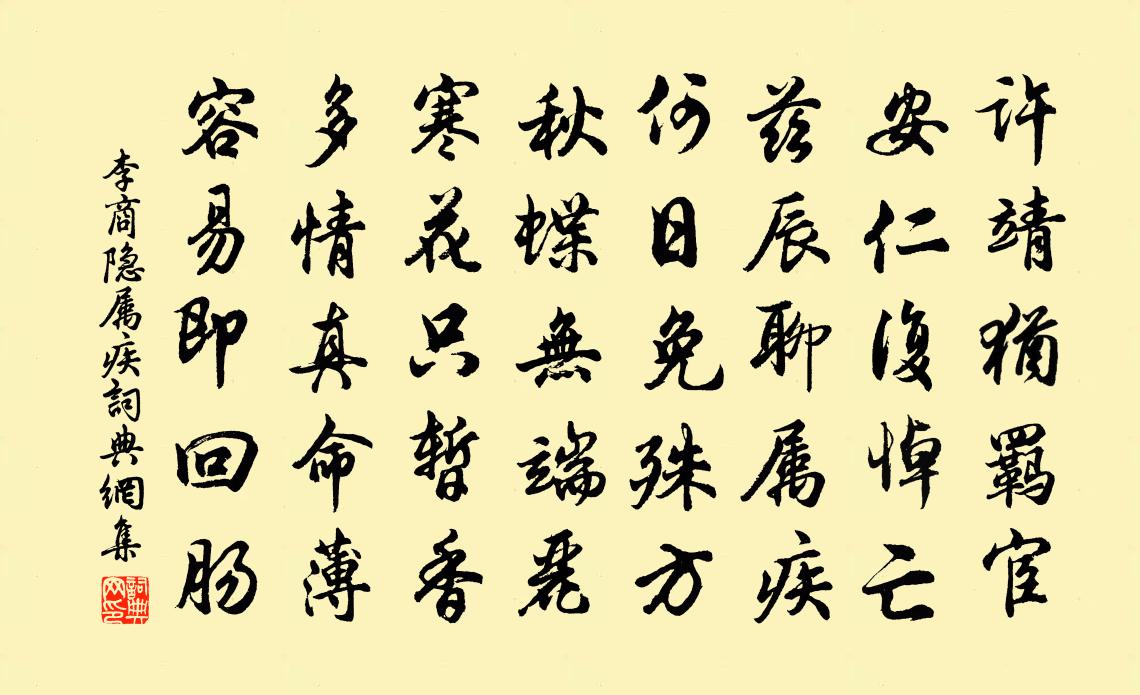 许靖猶羁宦
安仁復悼亡
茲辰聊属疾
何日免殊方
秋蝶無端麗
寒花只暂香
多情真命薄
容易即回肠
李商隐属疾詞典網集
詞典网印